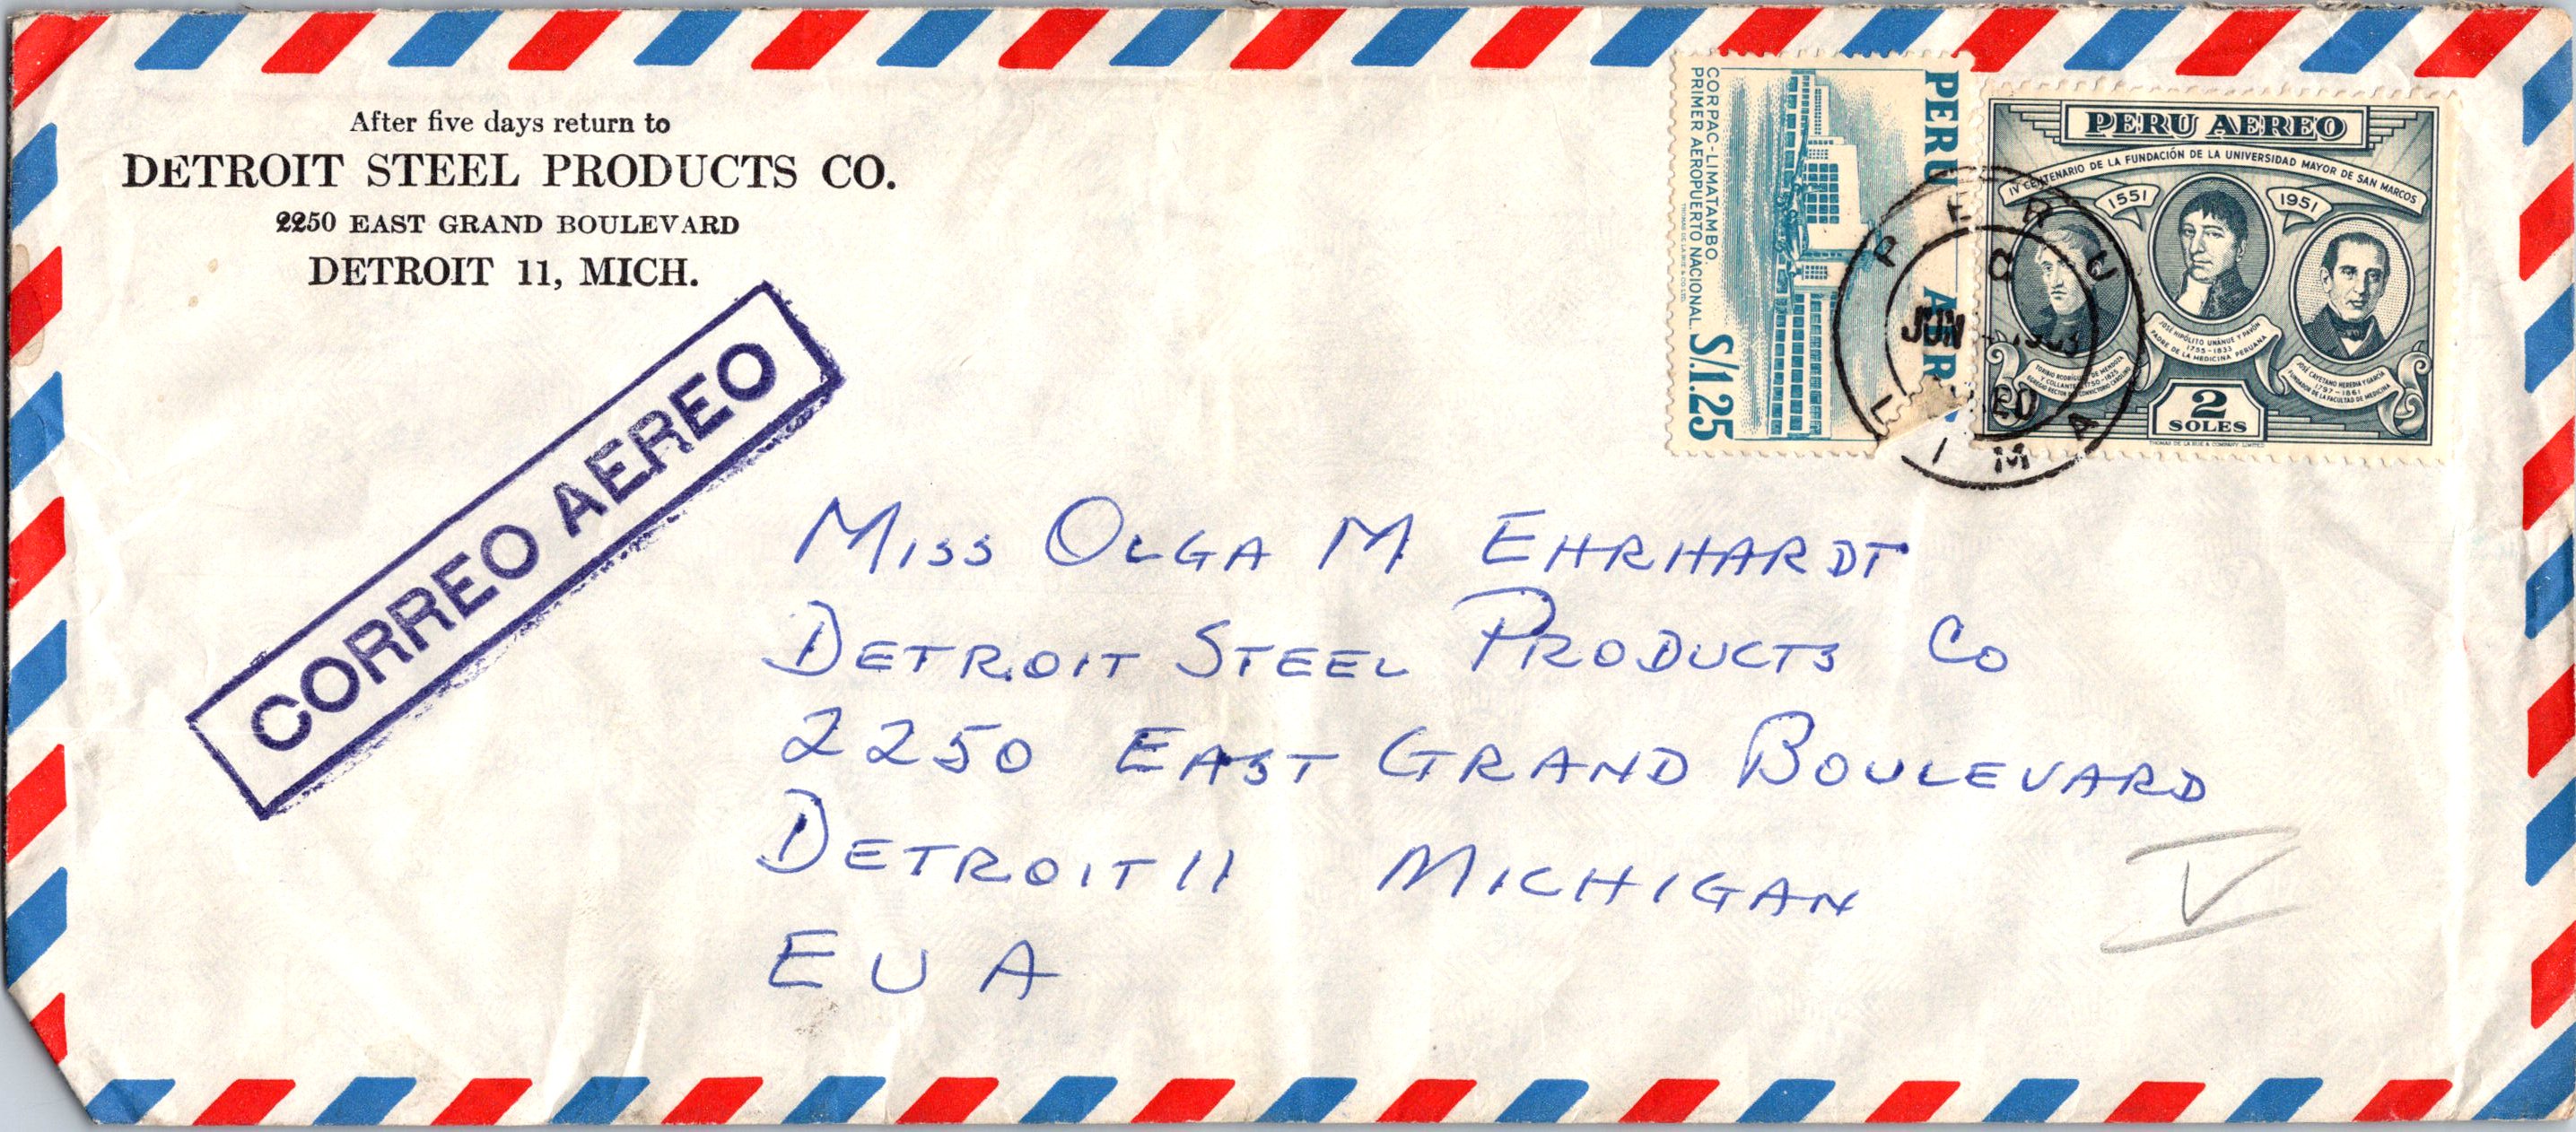 After five days return to
DETROIT STEEL PRODUCTS CO.
2250 EAST GRAND BOULEVARD
DETROIT 11, MICH.
CORREO AEREO
PERU AEREO
CORPAC-LIMATAMBO.
PRIMER AEROPUERTO NACIONAL.
S/.1.25
THOMAS DE LA RUE & CO. LTD.
PERU AEREO
IV CENTENARIO DE LA FUNDACIÓN DE LA UNIVERSIDAD MAYOR DE SAN MARCOS
1551 1951
TORIBIO RODRÍGUEZ DE MENDOZA
Y COLLANTES 1750-1825
JOSÉ HIPÓLITO UNÁNUE Y PAVÓN
1755-1833
PADRE DE LA MEDICINA PERUANA
JOSÉ CAYETANO HEREDIA Y GARCÍA
1797-1861
FUNDADOR DE LA FACULTAD DE MEDICINA
2
SOLES
THOMAS DE LA RUE & COMPANY, LIMITED
PERU
8
JUN
LIMA
MISS OLGA M EHRHARDT
DETROIT STEEL PRODUCTS CO
2250 EAST GRAND BOULEVARD
DETROIT 11 MICHIGAN
E U A
V